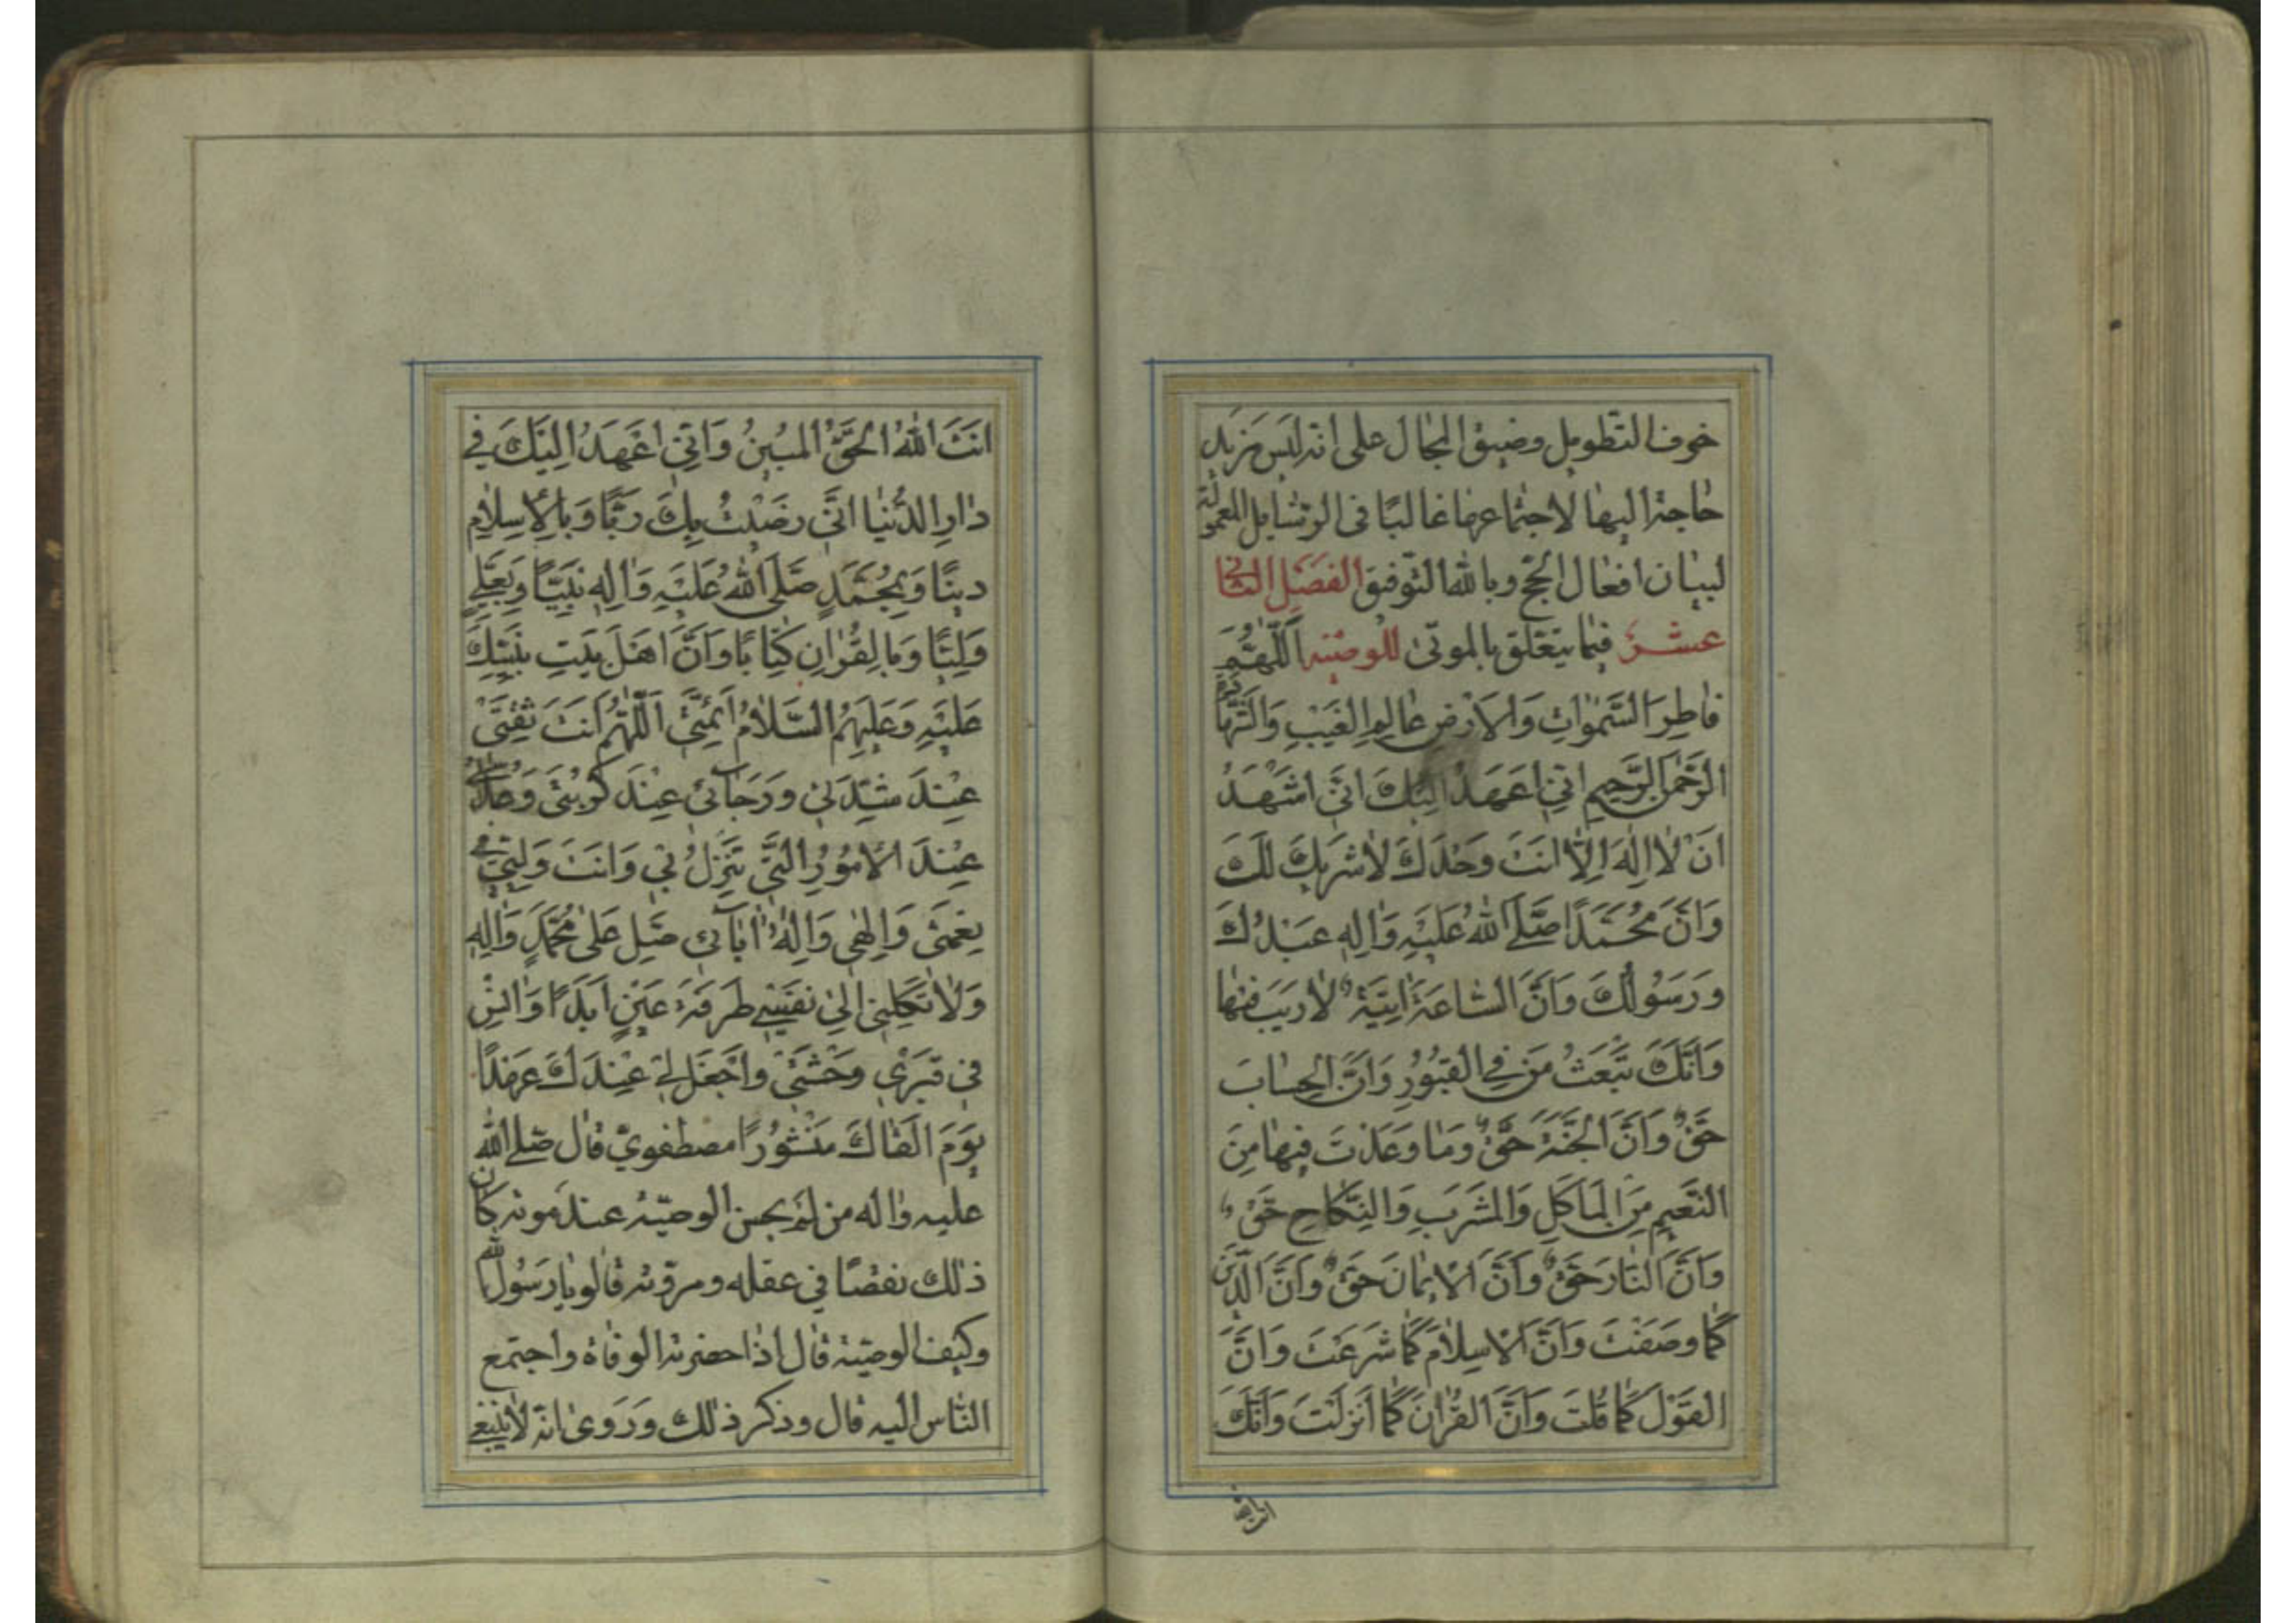 خوف التطويل وضيق المجال على انه ليس مزيد
حاجة اليها لاجتماعها غالبًا فى الرسايل المعمولة
لبيان افعال الحج وبالله التوفيق الفصل الثانى
عشر فيما يتعلق بالموتى للوصية اَللّٰهُمَّ
فَاطِرَ السَّمٰوَاتِ وَالاَرْضِ عَالِمَ الغَيْبِ وَالشَّهَادَةِ
الرَّحْمٰنَ الرَّحِيمَ اِنّى اَعْهَدُ اِلَيْكَ اَنّى اَشْهَدُ
اَنْ لَا اِلٰهَ اِلَّا اَنْتَ وَحْدَكَ لَا شَرِيكَ لَكَ
وَاَنَّ مُحَمَّدًا صَلَّى اللّٰهُ عَلَيْهِ وَاٰلِهِ عَبْدُكَ
وَرَسُولُكَ وَاَنَّ السَّاعَةَ اٰتِيَةٌ لَا رَيْبَ فِيهَا
وَاَنَّكَ تَبْعَثُ مَنْ فِي القُبُورِ وَاَنَّ الحِسَابَ
حَقٌّ وَاَنَّ الجَنَّةَ حَقٌّ وَمَا وَعَدْتَ فِيهَا مِنَ
النَّعِيمِ مِنَ المَاكَلِ وَالمَشْرَبِ وَالنِّكَاحِ حَقٌّ
وَاَنَّ النَّارَ حَقٌّ وَاَنَّ الاِيمَانَ حَقٌّ وَاَنَّ الدِّينَ
كَمَا وَصَفْتَ وَاَنَّ الاِسْلَامَ كَمَا شَرَعْتَ وَاَنَّ
القَوْلَ كَمَا قُلْتَ وَاَنَّ القُرْاٰنَ كَمَا اَنْزَلْتَ وَاَنَّكَ
اَنْتَ اللّٰهُ الحَقُّ المُبِينُ وَاَنّى اَعْهَدُ اِلَيْكَ فى
دَارِ الدُّنْيَا اَنّى رَضِيتُ بِكَ رَبًّا وَبِالاِسْلَامِ
دِينًا وَبِمُحَمَّدٍ صَلَّى اللّٰهُ عَلَيْهِ وَاٰلِهِ نَبِيًّا وَبِعَلِيٍّ
وَلِيًّا وَبِالقُرْاٰنِ كِتَابًا وَاَنَّ اَهْلَ بَيْتِ نَبِيِّكَ
عَلَيْهِ وَعَلَيْهِمُ السَّلَامُ اَئِمَّتى اَللّٰهُمَّ اَنْتَ ثِقَتى
عِنْدَ شِدَّتى وَرَجَآئى عِنْدَ كُرْبَتى وَعُدَّتى
عِنْدَ الاُمُورِ الَّتى تَنْزِلُ بى وَاَنْتَ وَلِيّى فى
نِعْمَتى وَاِلٰهى وَاِلٰهُ اٰبَآئى صَلِّ عَلَى مُحَمَّدٍ وَاٰلِهِ
وَلَا تَكِلْنى اِلى نَفْسى طَرْفَةَ عَيْنٍ اَبَدًا وَاٰنِسْ
فى قَبْرى وَحْشَتى وَاجْعَلْ لى عِنْدَكَ عَهْدًا
يَوْمَ اَلْقَاكَ مَنْشُورًا مصطفوىّ قال صلى الله
عليه واله من لم يحسن الوصية عند موته كان
ذلك نقصًا فى عقله ومروّته قالو يا رسول الله
وكيف الوصية قال اذا حضرته الوفاة واجتمع
الناس اليه قال وذكر ذلك وروى انه لا ينبغى